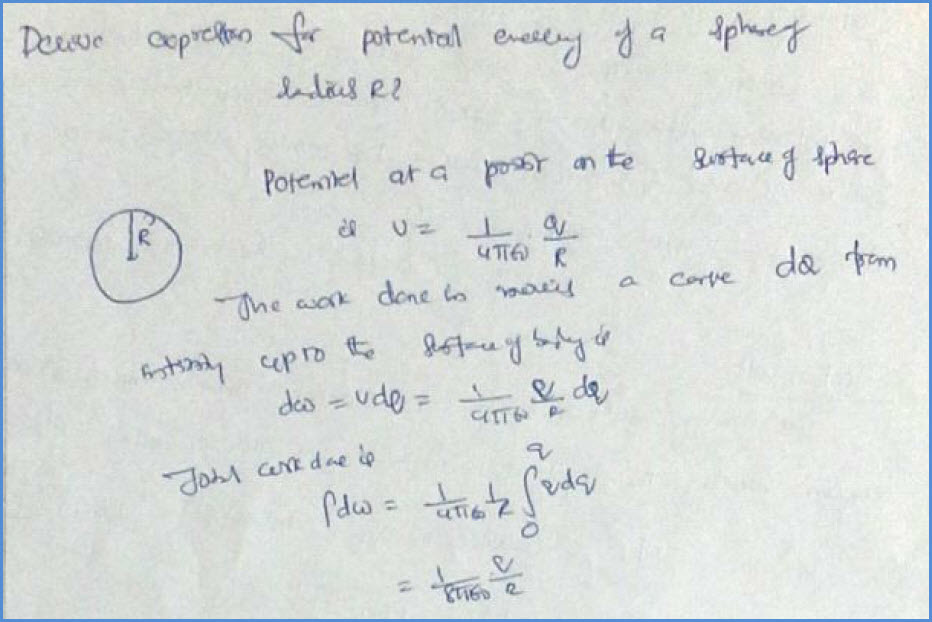 Derive expression for potential energy of a sphere of
radius R?
Potential at a point on the surface of sphere
R
is V = 1/4πε0 q/R
The work done in moving a dQ from
infinity upto the surface of body is
dw = vdq = 1/4πε0 q/R dq
Total work done is
∫dw = 1/4πε0 1/R ∫0^q q dq
= 1/8πε0 q/R